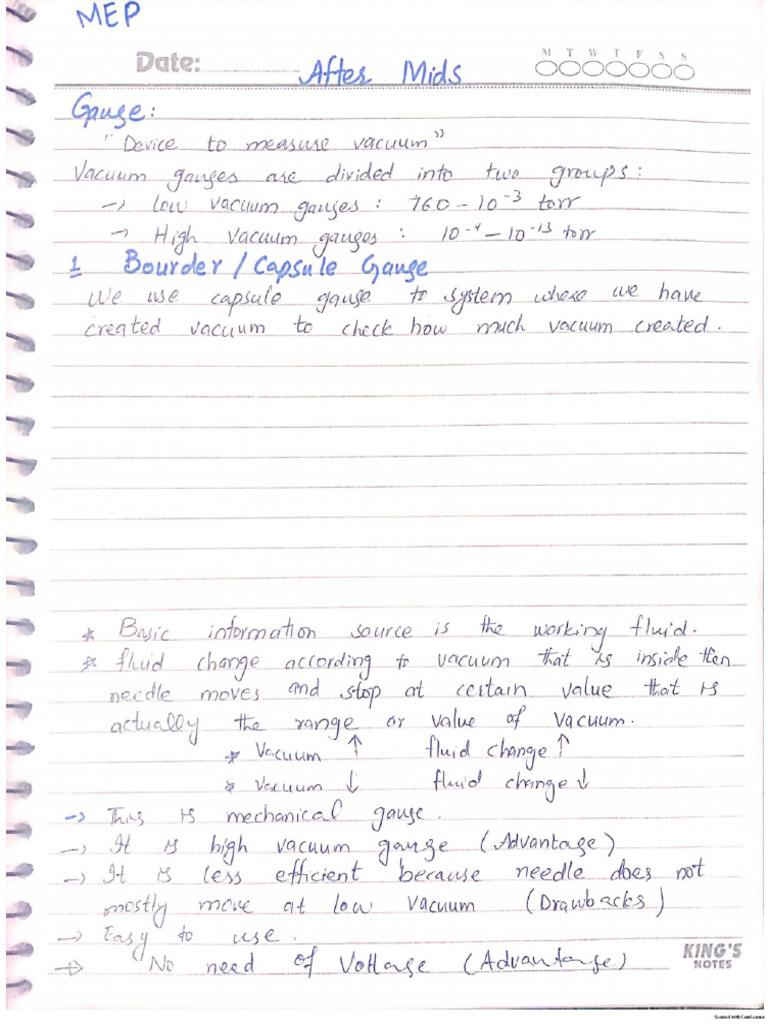 MEP
Date: After Mids
M T W T F S S
Gauge:
"Device to measure vacuum"
Vacuum gauges are divided into two groups:
→ low vacuum gauges : 760 – 10⁻³ torr
→ High vacuum gauges : 10⁻⁴ – 10⁻¹³ torr
1 Bourder / Capsule Gauge
We use capsule gauge to system where we have
created vacuum to check how much vacuum created.
* Basic information source is the working fluid.
* fluid change according to vacuum that is inside then
needle moves and stop at certain value that is
actually the range or value of vacuum.
* Vacuum ↑ fluid change ↑
* Vacuum ↓ fluid change ↓
→ This is mechanical gauge.
→ It is high vacuum gauge (Advantage)
→ It is less efficient because needle does not
mostly move at low vacuum (Drawbacks)
→ Easy to use.
→ No need of Voltage (Advantage)
KING'S
NOTES
Scanned with CamScanner